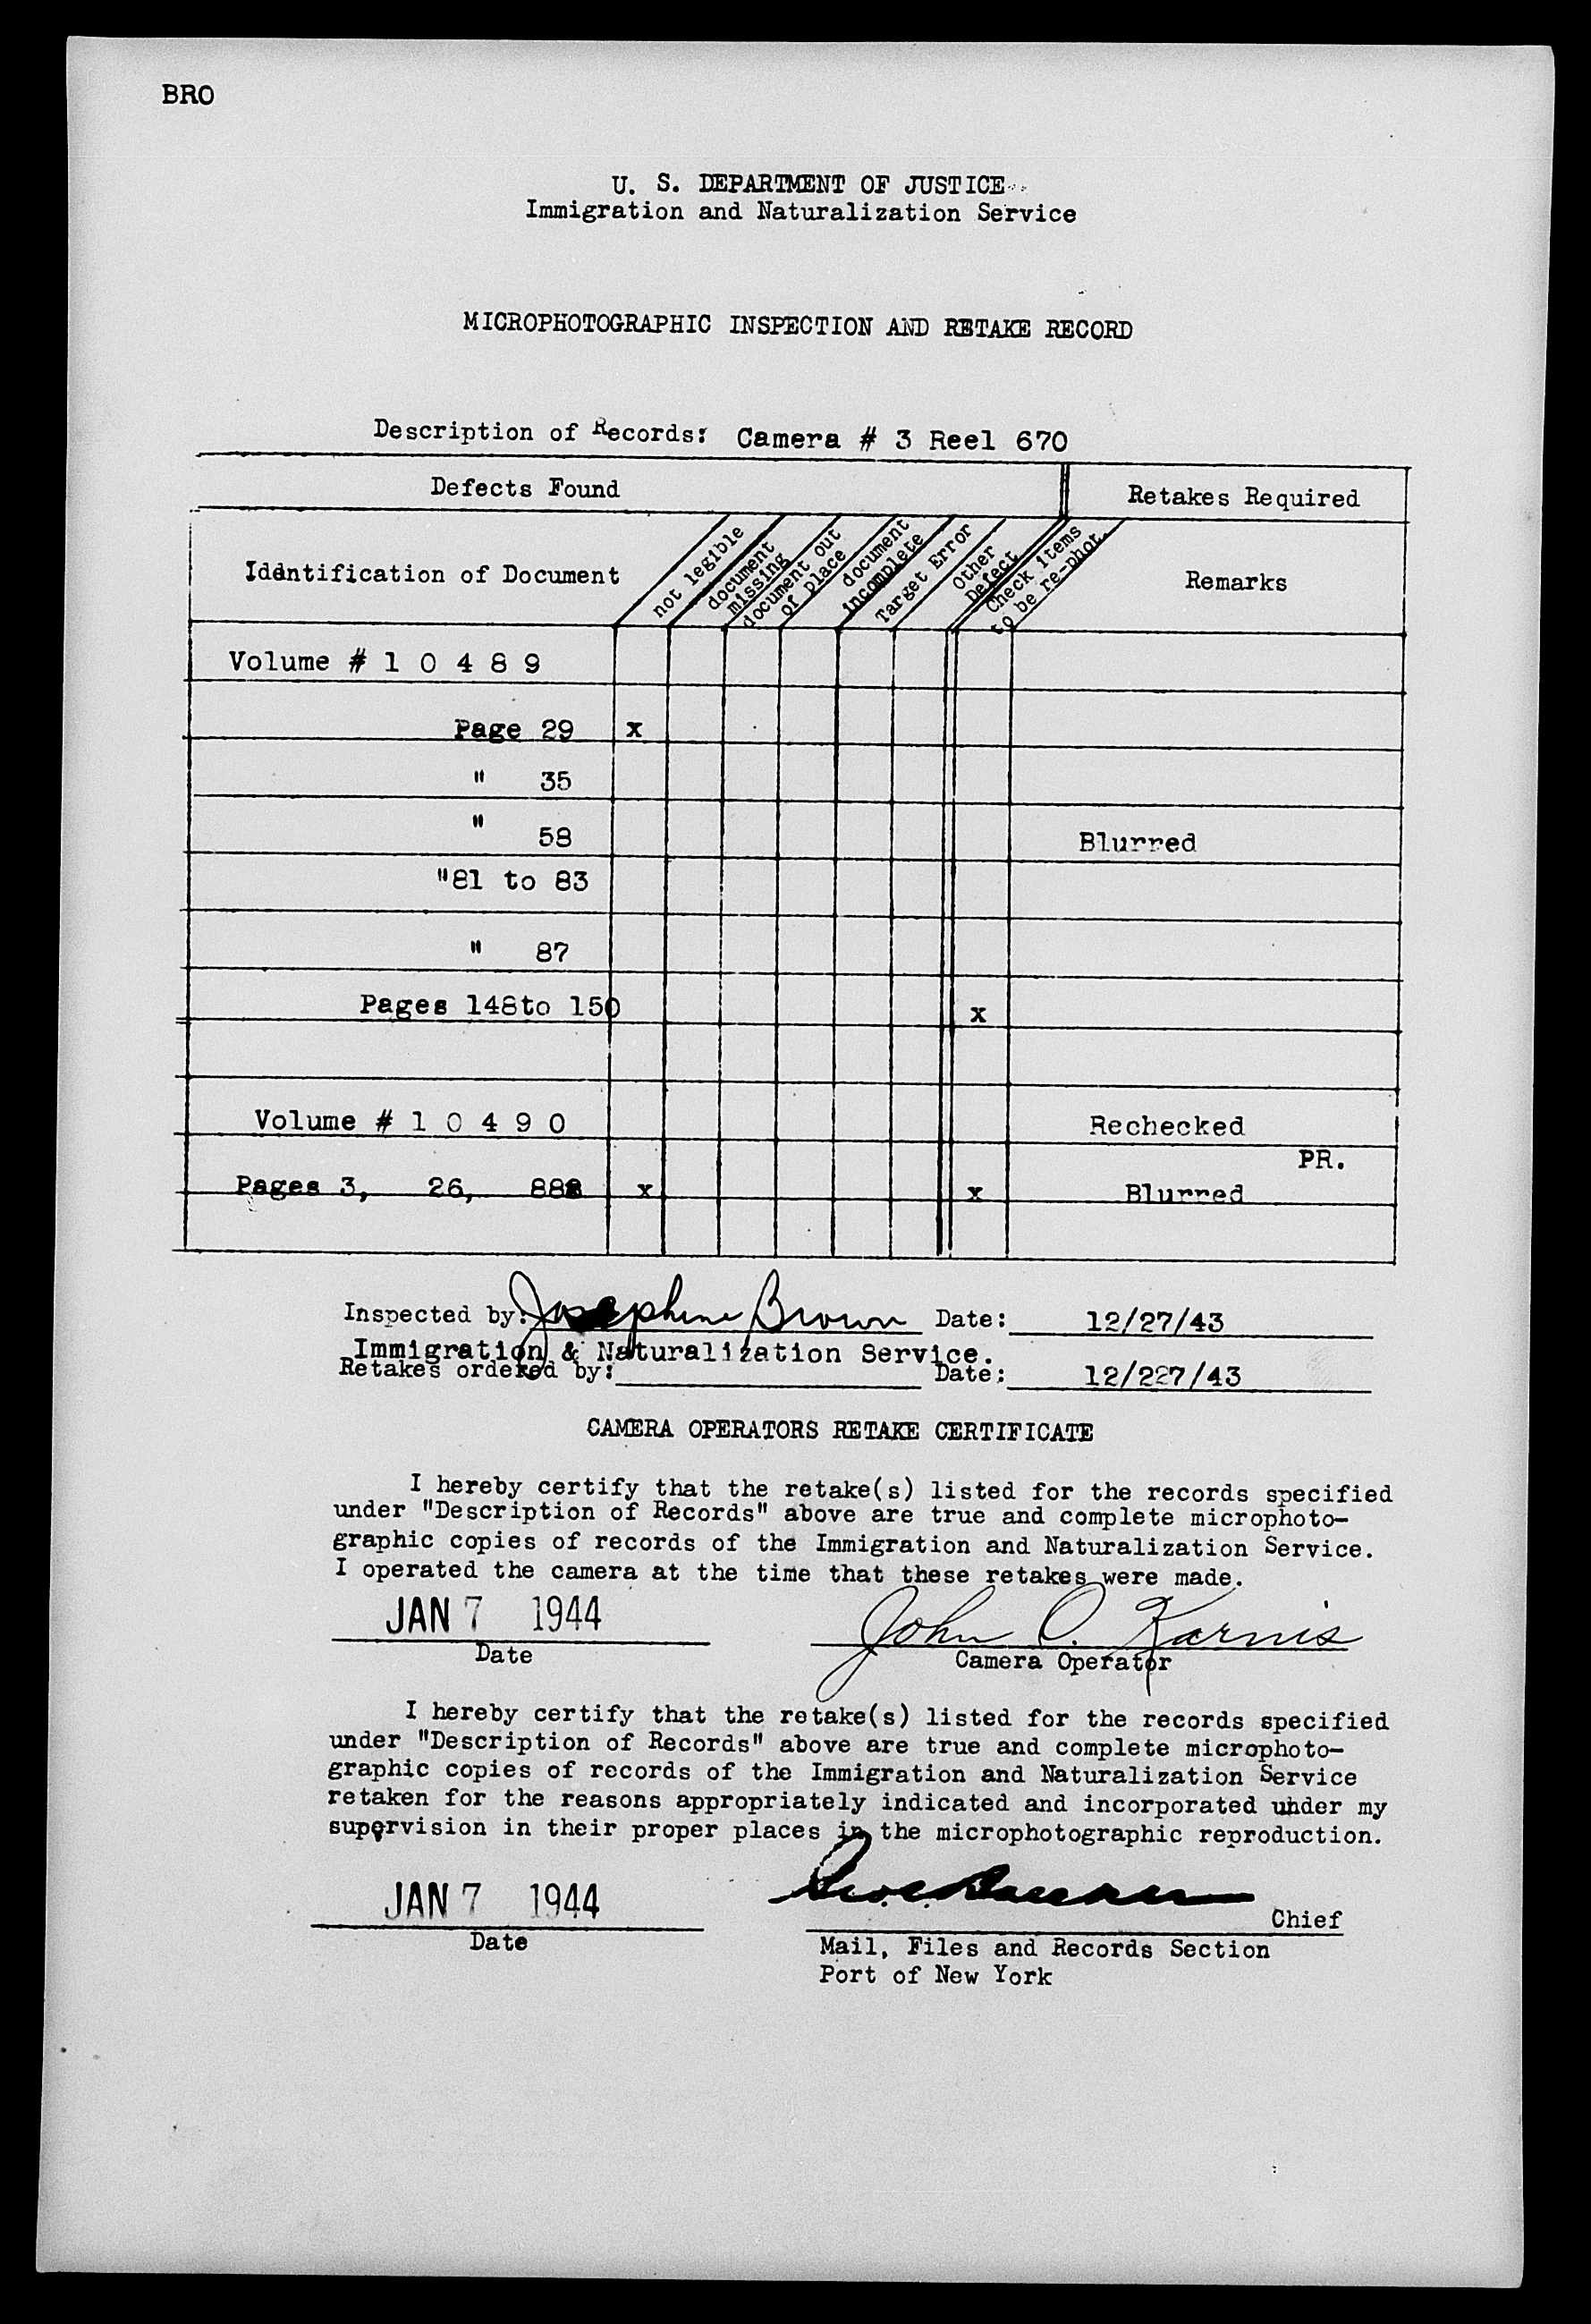 BRO
U. S. DEPARTMENT OF JUSTICE
Immigration and Naturalization Service
MICROPHOTOGRAPHIC INSPECTION AND RETAKE RECORD
Description of Records: Camera # 3 Reel 670
Defects Found
Retakes Required
Identification of Document
not legible
document missing
document out of place
document incomplete
Target Error
Other Defect
Check items to be re-phot.
Remarks
Volume # 1 0 4 8 9
Page 29 x
" 35
" 58 Blurred
"81 to 83
" 87
Pages 148to 150 x
Volume # 1 0 4 9 0 Rechecked
PR.
Pages 3, 26, 88 x x Blurred
Inspected by: Josephine Brown Date: 12/27/43
Immigration & Naturalization Service.
Retakes ordered by: Date: 12/227/43
CAMERA OPERATORS RETAKE CERTIFICATE
I hereby certify that the retake(s) listed for the records specified
under "Description of Records" above are true and complete microphoto-
graphic copies of records of the Immigration and Naturalization Service.
I operated the camera at the time that these retakes were made.
JAN 7 1944 John O. Karnis
Date Camera Operator
I hereby certify that the retake(s) listed for the records specified
under "Description of Records" above are true and complete microphoto-
graphic copies of records of the Immigration and Naturalization Service
retaken for the reasons appropriately indicated and incorporated under my
supervision in their proper places in the microphotographic reproduction.
JAN 7 1944
Chief
Date Mail, Files and Records Section
Port of New York